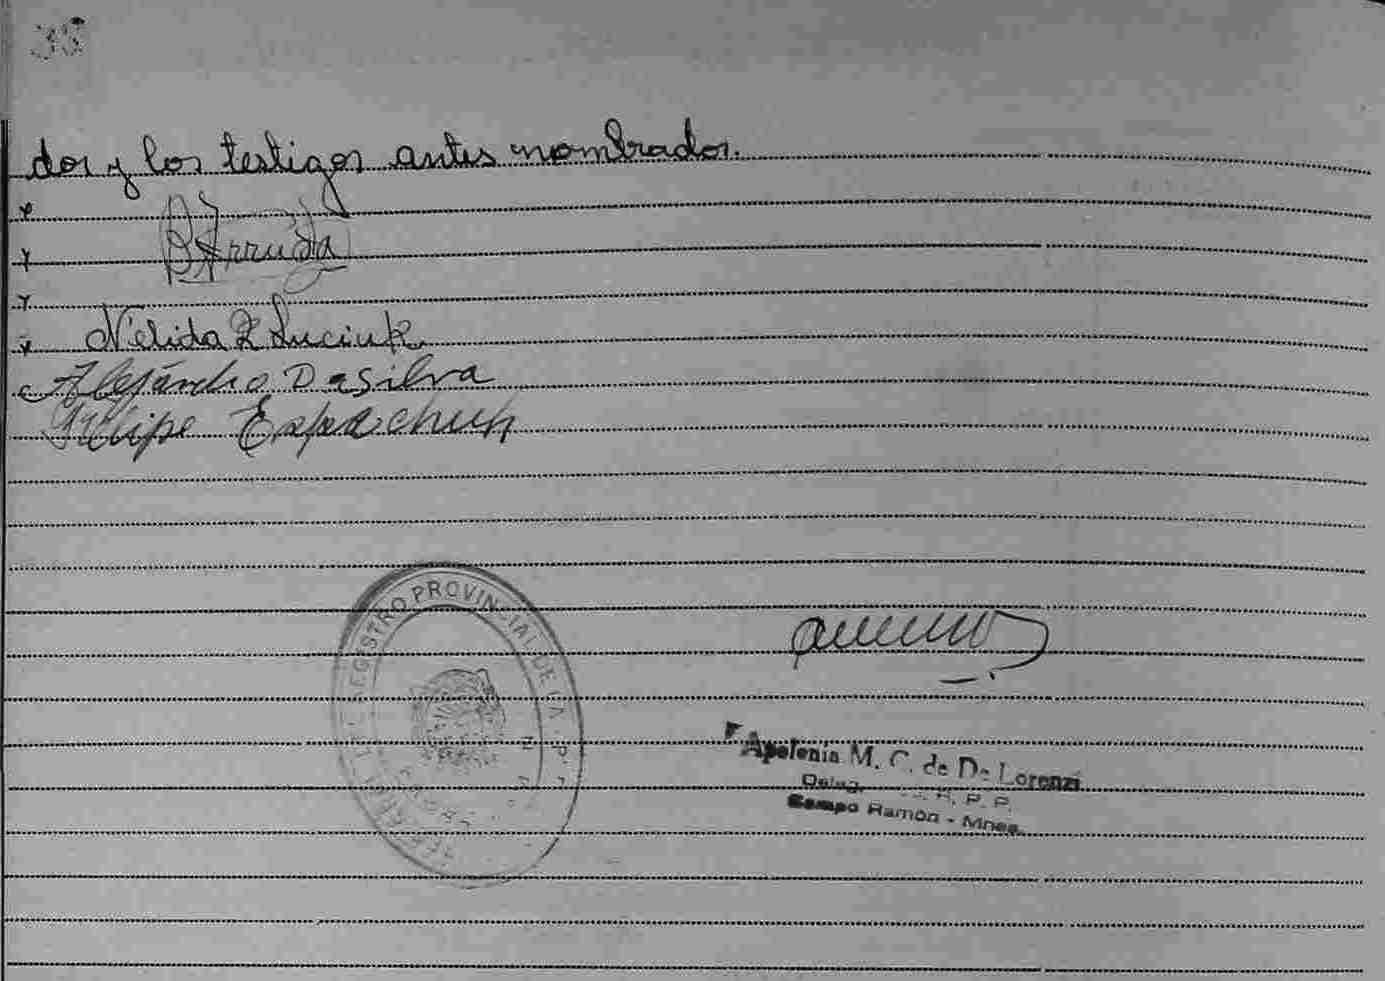 35
dos y los testigos antes nombrados.
B Arruda
Nélida R Luciuk
Alejandro Dasilva
Felipe
REGISTRO PROVINCIAL DE LA
Apolonia M. C. de De Lorenzi
Deleg. R. P. P.
Campo Ramón - Mnes.